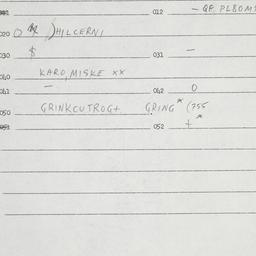 012 — GF. PLBOMS
020 HILCERNI
030 $ 031 —
040 KARO, MISKE xx
041 — 042 0
050 GRINKCUTROG+ GRING* (755
052 +*